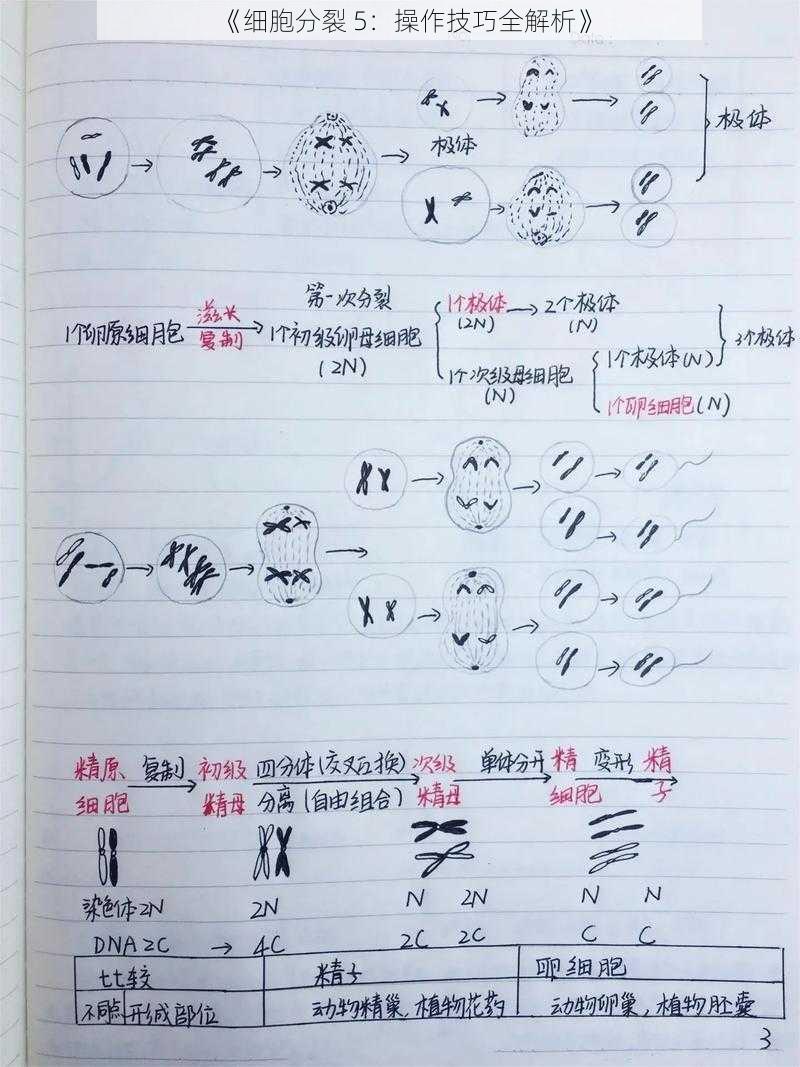 《细胞分裂 5：操作技巧全解析》
极体
极体
第一次分裂
1个卵原细胞 滋长 复制 1个初级卵母细胞 (2N)
1个极体 (2N) 2个极体 (N)
1个次级母细胞 (N)
1个极体(N)
1个卵细胞(N)
3个极体
精原细胞 复制 初级精母 四分体(交叉互换) 分离(自由组合) 次级精母 单体分开 精细胞 变形 精子
染色体2N 2N N 2N N N
DNA 2C → 4C 2C 2C C C
比较 精子 卵细胞
不同点 形成部位 动物精巢,植物花药 动物卵巢,植物胚囊
3